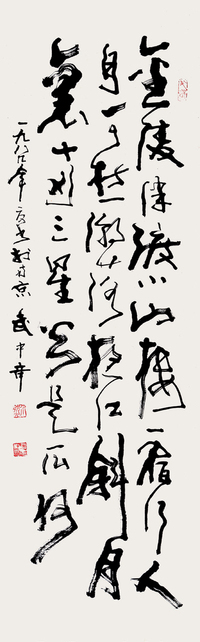 金陵津渡小山樓一宿行人
自可愁潮落夜江斜月
裏兩三星火是瓜州
一九八年書於京 武中奇